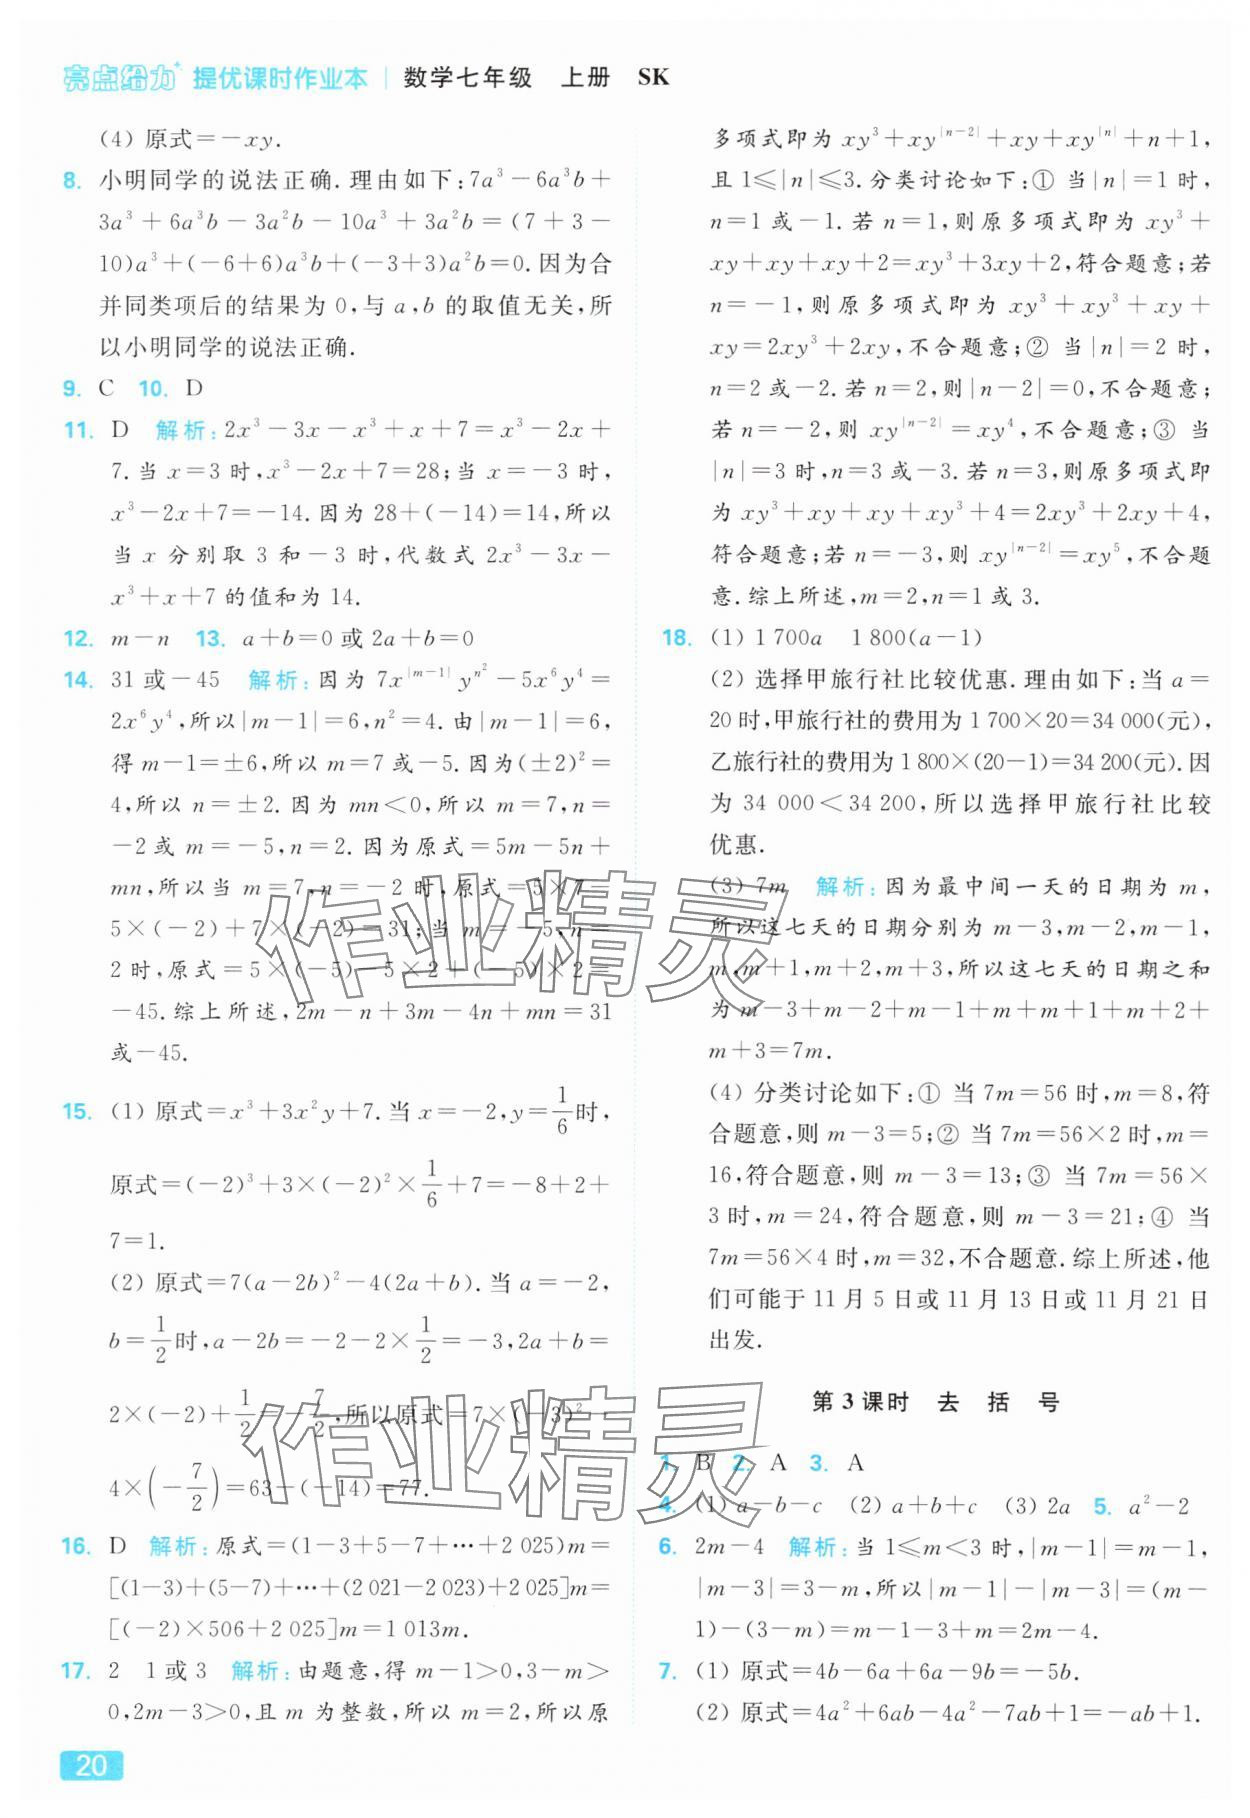 亮点给力 提优课时作业本 | 数学七年级 上册 SK
(4) 原式=-xy.
8. 小明同学的说法正确.理由如下:7a³-6a³b+
3a³+6a³b-3a²b-10a³+3a²b=(7+3-
10)a³+(-6+6)a³b+(-3+3)a²b=0.因为合
并同类项后的结果为 0,与 a,b 的取值无关,所
以小明同学的说法正确.
9. C 10. D
11. D 解析:2x³-3x-x³+x+7=x³-2x+
7.当 x=3 时,x³-2x+7=28;当 x=-3 时,
x³-2x+7=-14.因为 28+(-14)=14,所以
当 x 分别取 3 和-3 时,代数式 2x³-3x-
x³+x+7 的值和为 14.
12. m-n 13. a+b=0 或 2a+b=0
14. 31 或-45 解析:因为 7x^|m-1| y^n²-5x⁶y⁴=
2x⁶y⁴,所以|m-1|=6,n²=4.由|m-1|=6,
得 m-1=±6,所以 m=7 或-5.因为(±2)²=
4,所以 n=±2.因为 mn<0,所以 m=7,n=
-2 或 m=-5,n=2.因为原式=5m-5n+
mn,所以当 m=7,n=-2 时,原式=5×7-
5×(-2)+7×(-2)=31;当 m=-5,n=
2 时,原式=5×(-5)-5×2+(-5)×2=
-45.综上所述,2m-n+3m-4n+mn=31
或-45.
15. (1) 原式=x³+3x²y+7.当 x=-2,y=1/6时,
原式=(-2)³+3×(-2)²×1/6+7=-8+2+
7=1.
(2) 原式=7(a-2b)²-4(2a+b).当 a=-2,
b=1/2时,a-2b=-2-2×1/2=-3,2a+b=
2×(-2)+1/2=-7/2,所以原式=7×(-3)²-
4×(-7/2)=63-(-14)=77.
16. D 解析:原式=(1-3+5-7+…+2 025)m=
[(1-3)+(5-7)+…+(2 021-2 023)+2 025]m=
[(-2)×506+2 025]m=1 013m.
17. 2 1 或 3 解析:由题意,得 m-1>0,3-m>
0,2m-3>0,且 m 为整数,所以 m=2,所以原
多项式即为 xy³+xy^|n-2|+xy+xy^|n|+n+1,
且 1≤|n|≤3.分类讨论如下:① 当|n|=1 时,
n=1 或-1.若 n=1,则原多项式即为 xy³+
xy+xy+xy+2=xy³+3xy+2,符合题意;若
n=-1,则原多项式即为 xy³+xy³+xy+
xy=2xy³+2xy,不合题意;② 当|n|=2 时,
n=2 或-2.若 n=2,则|n-2|=0,不合题意;
若 n=-2,则 xy^|n-2|=xy⁴,不合题意;③ 当
|n|=3 时,n=3 或-3.若 n=3,则原多项式即
为 xy³+xy+xy+xy³+4=2xy³+2xy+4,
符合题意;若 n=-3,则 xy^|n-2|=xy⁵,不合题
意.综上所述,m=2,n=1 或 3.
18. (1) 1 700a 1 800(a-1)
(2) 选择甲旅行社比较优惠.理由如下:当 a=
20 时,甲旅行社的费用为 1 700×20=34 000(元),
乙旅行社的费用为 1 800×(20-1)=34 200(元).因
为 34 000<34 200,所以选择甲旅行社比较
优惠.
(3) 7m 解析:因为最中间一天的日期为 m,
所以这七天的日期分别为 m-3,m-2,m-1,
m,m+1,m+2,m+3,所以这七天的日期之和
为 m-3+m-2+m-1+m+m+1+m+2+
m+3=7m.
(4) 分类讨论如下:① 当 7m=56 时,m=8,符
合题意,则 m-3=5;② 当 7m=56×2 时,m=
16,符合题意,则 m-3=13;③ 当 7m=56×
3 时,m=24,符合题意,则 m-3=21;④ 当
7m=56×4 时,m=32,不合题意.综上所述,他
们可能于 11 月 5 日或 11 月 13 日或 11 月 21 日
出发.
第 3 课时 去 括 号
1. B 2. A 3. A
4. (1) a-b-c (2) a+b+c (3) 2a 5. a²-2
6. 2m-4 解析:当 1≤m<3 时,|m-1|=m-1,
|m-3|=3-m,所以|m-1|-|m-3|=(m-
1)-(3-m)=m-1-3+m=2m-4.
7. (1) 原式=4b-6a+6a-9b=-5b.
(2) 原式=4a²+6ab-4a²-7ab+1=-ab+1.
20
作业精灵
作业精灵